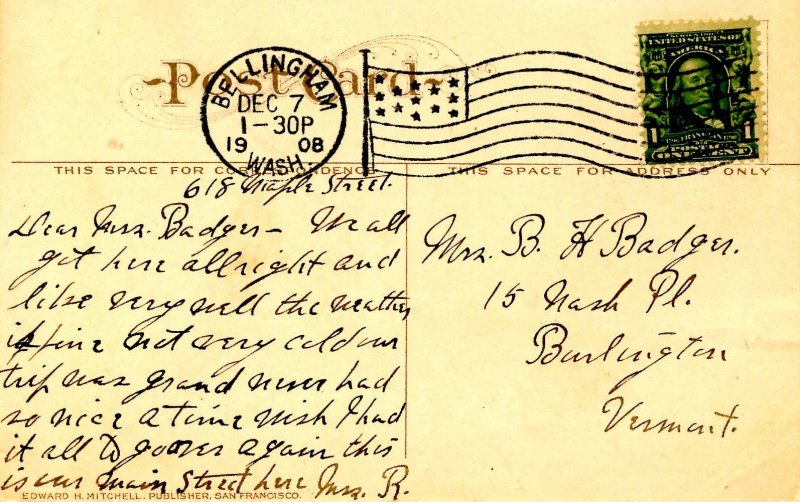 Post Card
BELLINGHAM
DEC 7
1-30P
1908
WASH.
SERIES 1902
UNITED STATES OF
AMERICA
THIS SPACE FOR CORRESPONDENCE
THIS SPACE FOR ADDRESS ONLY
618 Maple Street.
Dear Mrs. Badger - We all
get here allright and
like very well the weather
is fine not very cold our
trip was grand never had
so nice a time wish I had
it all to go over again this
is our main Street here Mrs. R.
Mrs. B. H Badger.
15 Nash Pl.
Burlington
Vermont.
EDWARD H. MITCHELL, PUBLISHER, SAN FRANCISCO.